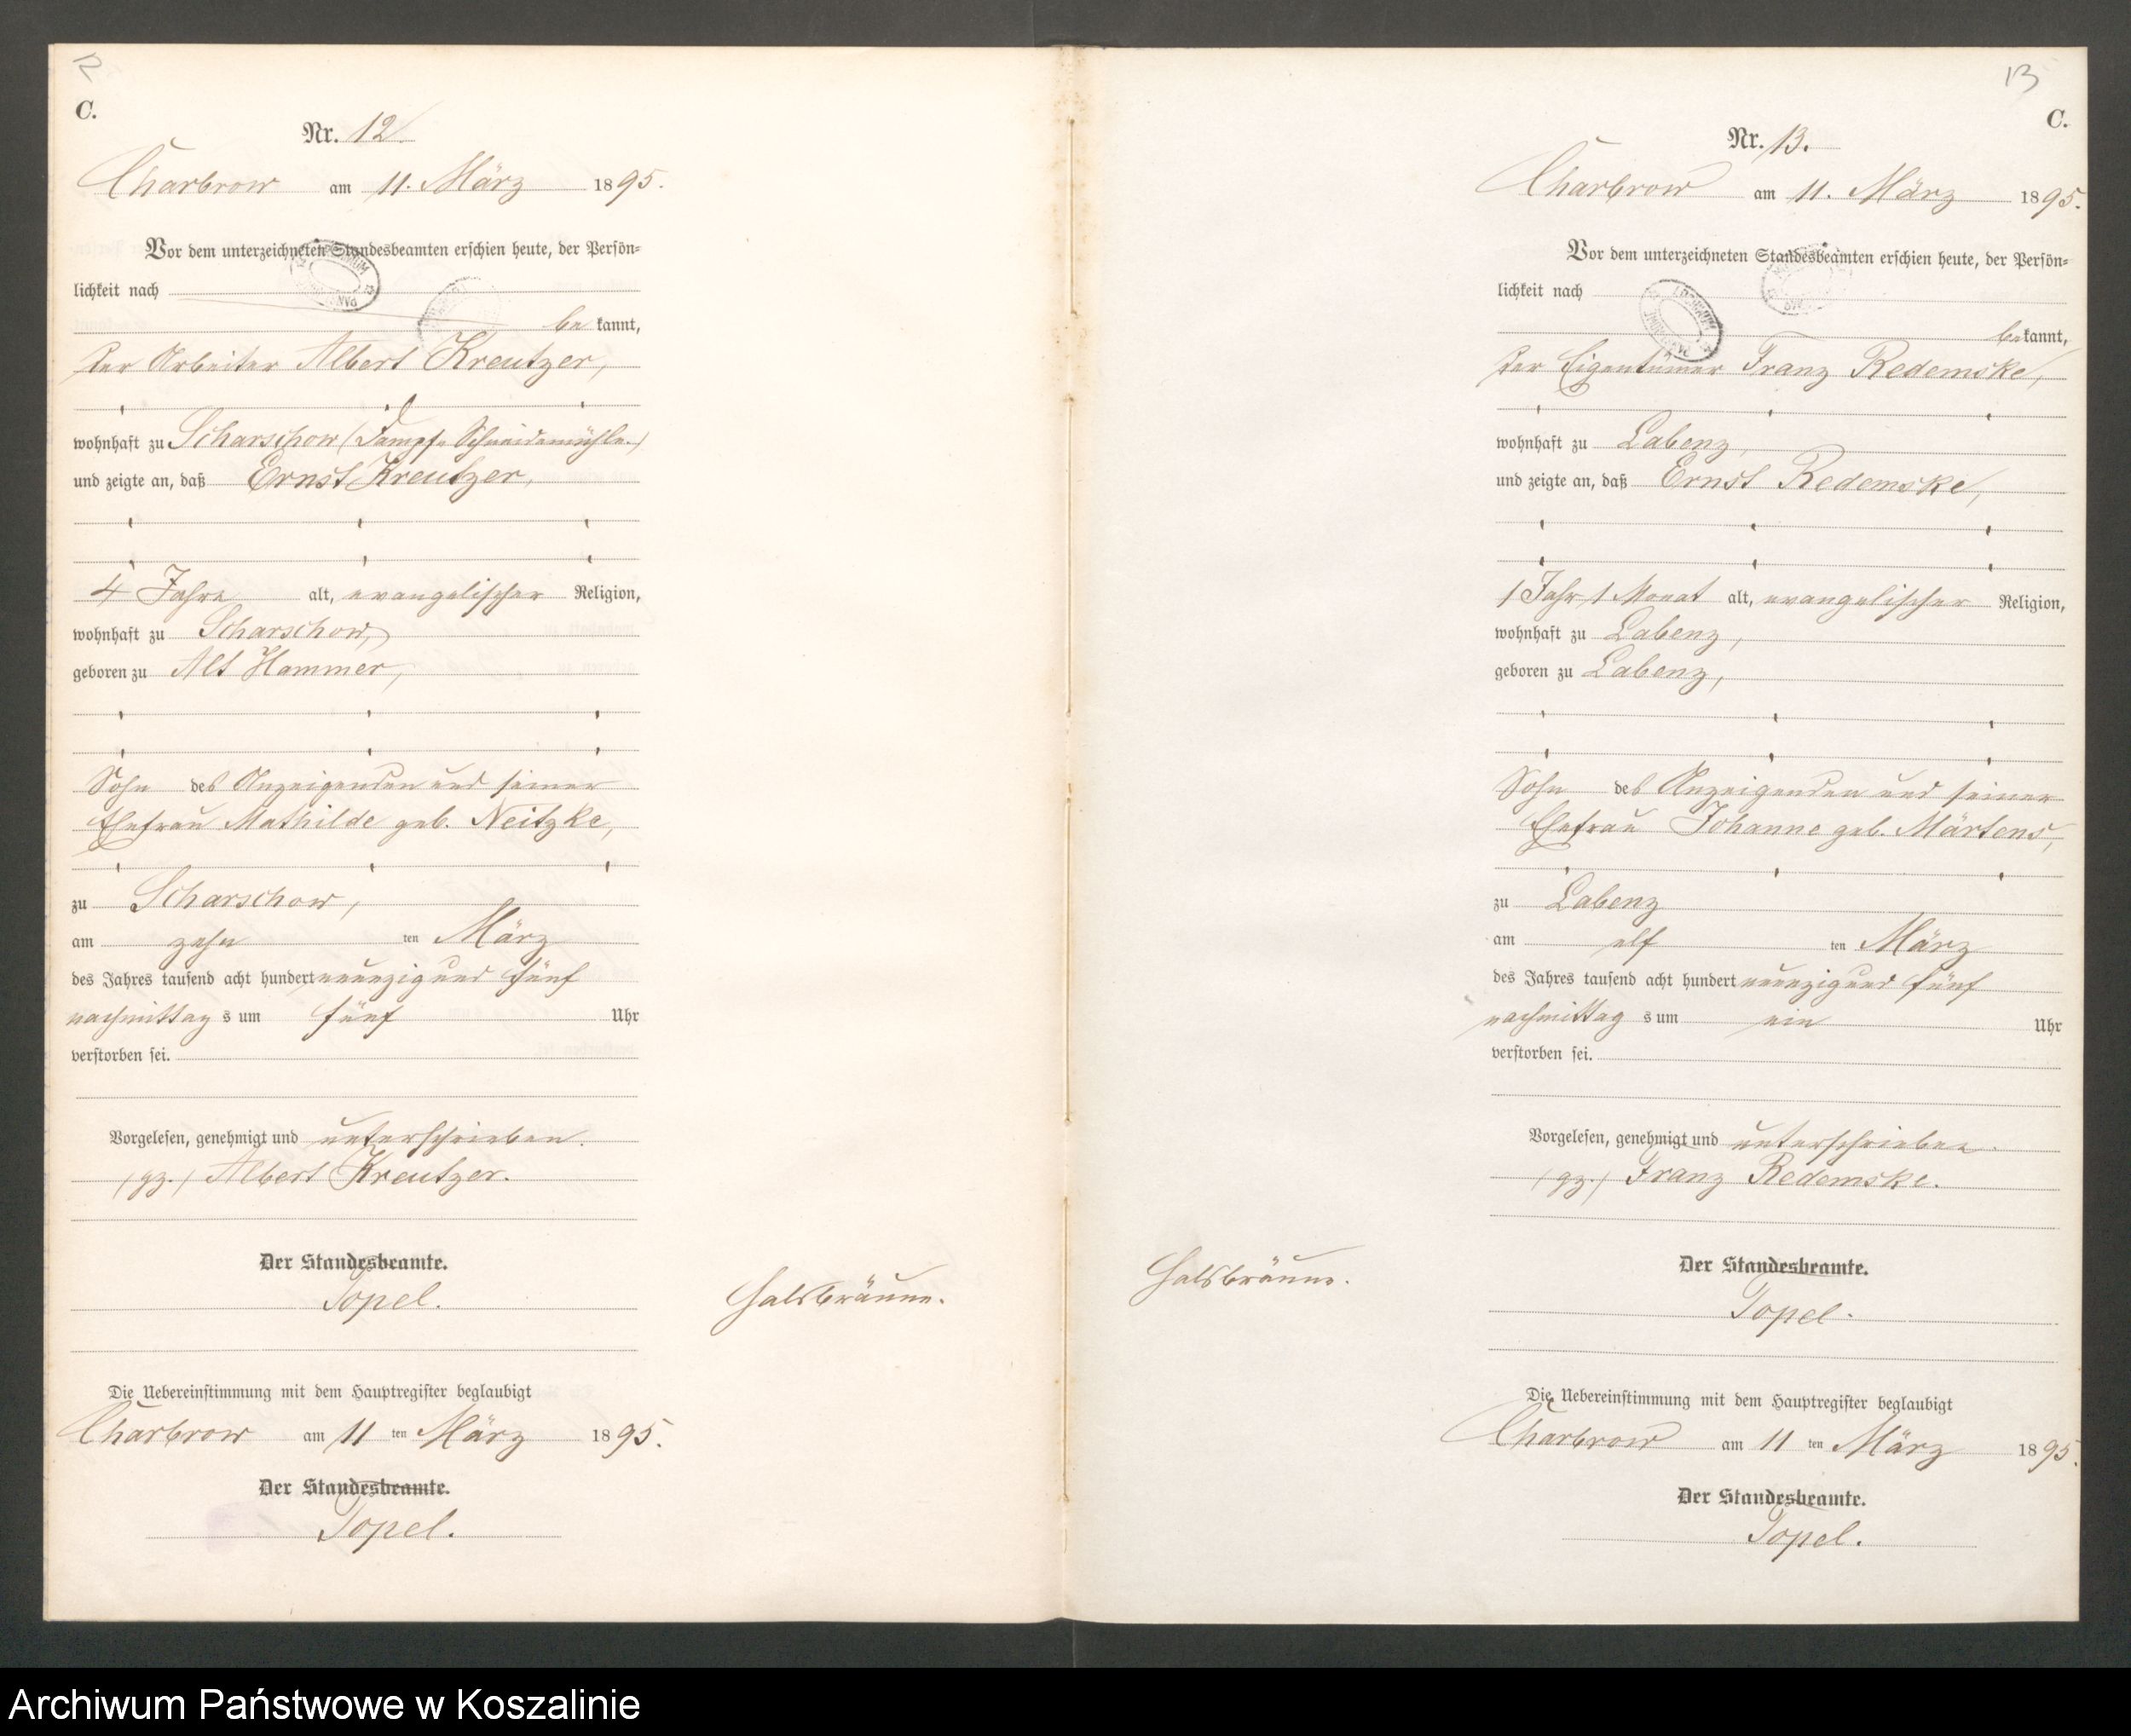 12
C.
Nr. 12.
Charbrow am 11. März 1895.
Vor dem unterzeichneten Standesbeamten erschien heute, der Persön-
lichkeit nach
bekannt,
der Arbeiter Albert Kreutzer,
wohnhaft zu Scharschow (Dampf-Schneidemühle.)
und zeigte an, daß Ernst Kreutzer,
4 Jahre alt, evangelischer Religion,
wohnhaft zu Scharschow,
geboren zu Alt Hammer,
Sohn des Anzeigenden und seiner
Ehefrau Mathilde geb. Neitzke,
zu Scharschow,
am zehn ten März
des Jahres tausend acht hundert neunzig und fünf
nachmittag s um fünf Uhr
verstorben sei.
Vorgelesen, genehmigt und unterschrieben.
(gz.) Albert Kreutzer.
Der Standesbeamte.
Topel.
Halsbräune.
Die Uebereinstimmung mit dem Hauptregister beglaubigt
Charbrow am 11 ten März 1895.
Der Standesbeamte.
Topel.
13
C.
Nr. 13.
Charbrow am 11. März 1895.
Vor dem unterzeichneten Standesbeamten erschien heute, der Persön-
lichkeit nach
bekannt,
der Eigentümer Franz Redemske,
wohnhaft zu Labenz,
und zeigte an, daß Ernst Redemske,
1 Jahr 1 Monat alt, evangelischer Religion,
wohnhaft zu Labenz,
geboren zu Labenz,
Sohn des Anzeigenden und seiner
Ehefrau Johanne geb. Märtens,
zu Labenz
am elf ten März
des Jahres tausend acht hundert neunzig und fünf
nachmittag s um ein Uhr
verstorben sei.
Vorgelesen, genehmigt und unterschrieben.
(gz.) Franz Redemske.
Der Standesbeamte.
Topel.
Halsbräune.
Die Uebereinstimmung mit dem Hauptregister beglaubigt
Charbrow am 11 ten März 1895.
Der Standesbeamte.
Topel.
Archiwum Państwowe w Koszalinie